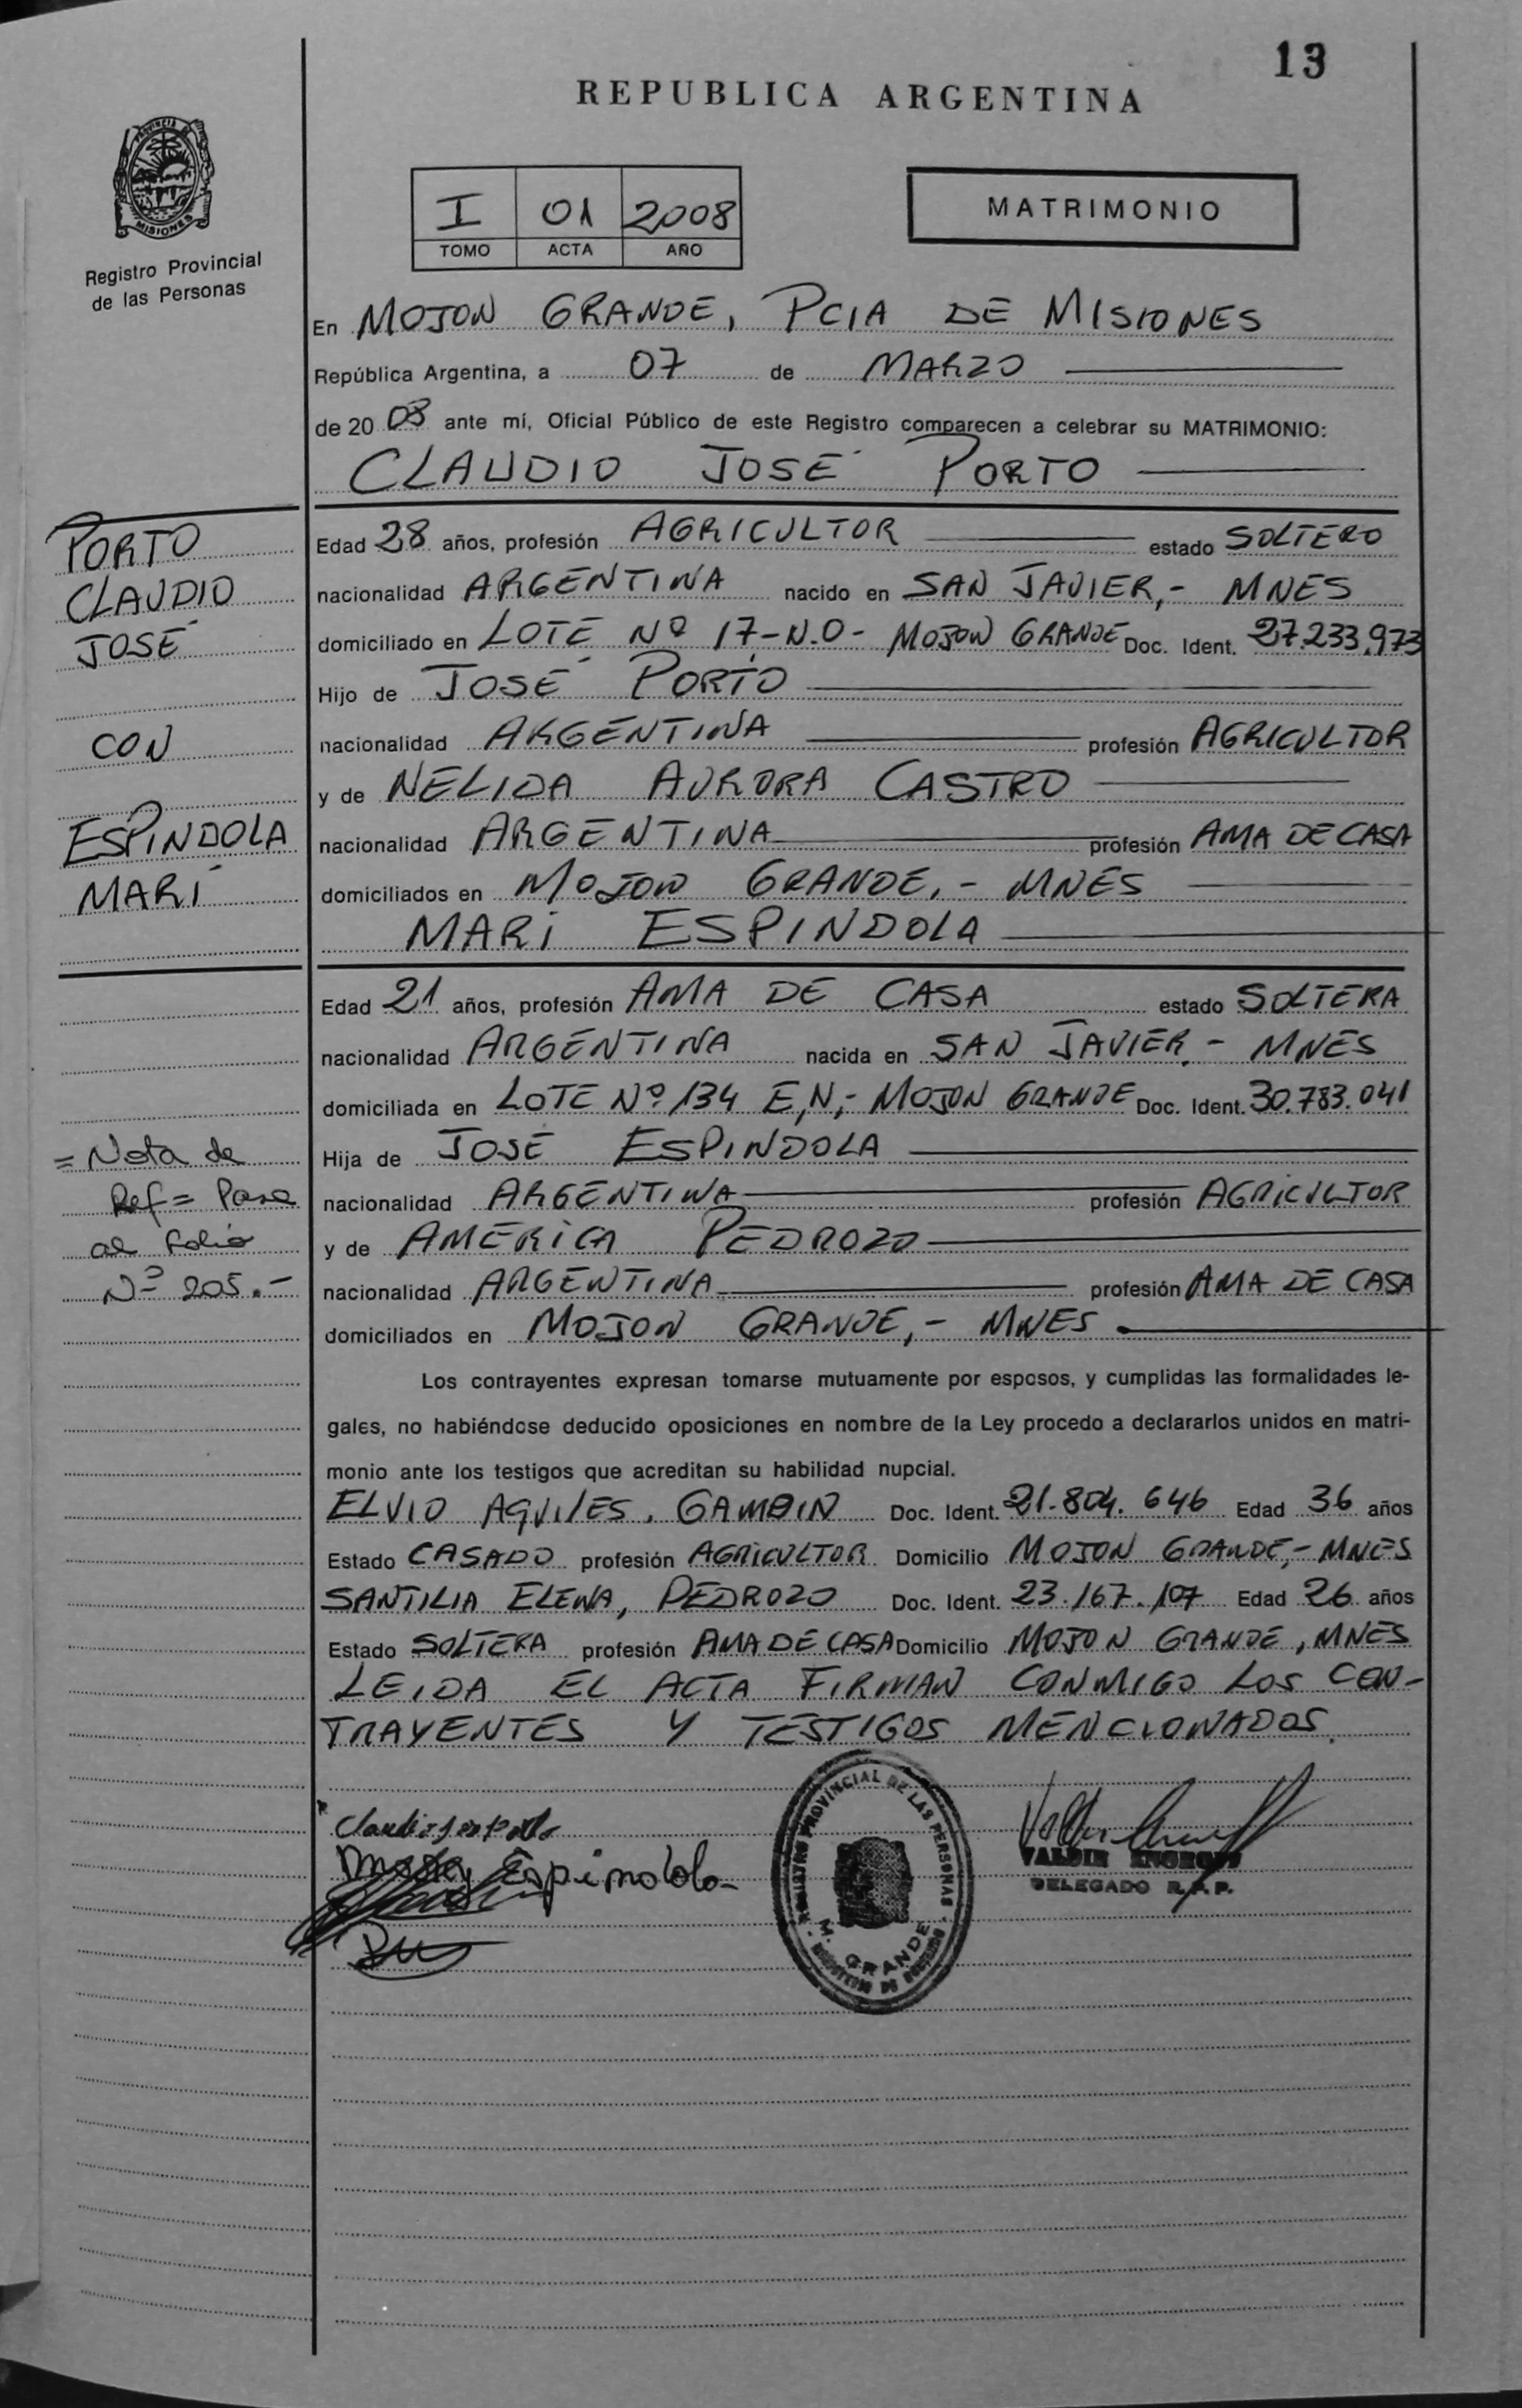 13
REPUBLICA ARGENTINA
PROVINCIA DE
MISIONES
Registro Provincial
de las Personas
I 01 2008
TOMO ACTA AÑO
MATRIMONIO
En MOJON GRANDE, PCIA DE MISIONES
República Argentina, a 07 de MARZO
de 20 08 ante mí, Oficial Público de este Registro comparecen a celebrar su MATRIMONIO:
CLAUDIO JOSÉ PORTO
PORTO
CLAUDIO
JOSÉ
CON
ESPINDOLA
MARÍ
Edad 28 años, profesión AGRICULTOR estado SOLTERO
nacionalidad ARGENTINA nacido en SAN JAVIER,- MNES
domiciliado en LOTE Nº 17-N.O- MOJON GRANDE Doc. Ident. 27.233.973
Hijo de JOSÉ PORTO
nacionalidad ARGENTINA profesión AGRICULTOR
y de NELIDA AURORA CASTRO
nacionalidad ARGENTINA profesión AMA DE CASA
domiciliados en MOJON GRANDE,- MNES
MARI ESPINDOLA
Edad 21 años, profesión AMA DE CASA estado SOLTERA
nacionalidad ARGENTINA nacida en SAN JAVIER.- MNES
domiciliada en LOTE Nº 134 E,N,- MOJON GRANDE Doc. Ident. 30.783.041
Hija de JOSE ESPINDOLA
nacionalidad ARGENTINA profesión AGRICULTOR
y de AMERICA PEDROZO
nacionalidad ARGENTINA profesión AMA DE CASA
domiciliados en MOJON GRANDE,- MNES
= Nota de
Ref = Pase
al folio
Nº 205.-
Los contrayentes expresan tomarse mutuamente por esposos, y cumplidas las formalidades le-
gales, no habiéndose deducido oposiciones en nombre de la Ley procedo a declararlos unidos en matri-
monio ante los testigos que acreditan su habilidad nupcial.
ELVIO AQUILES, GAMBIN Doc. Ident. 21.804.646 Edad 36 años
Estado CASADO profesión AGRICULTOR Domicilio MOJON GRANDE,- MNES
SANTILIA ELENA, PEDROZO Doc. Ident. 23.167.107 Edad 26 años
Estado SOLTERA profesión AMA DE CASA Domicilio MOJON GRANDE, MNES
LEIDA EL ACTA FIRMAN CONMIGO LOS CON-
TRAYENTES Y TESTIGOS MENCIONADOS.
Espindola
REGISTRO PROVINCIAL DE LAS PERSONAS
M. GRANDE
DELEGADO R.P.P.